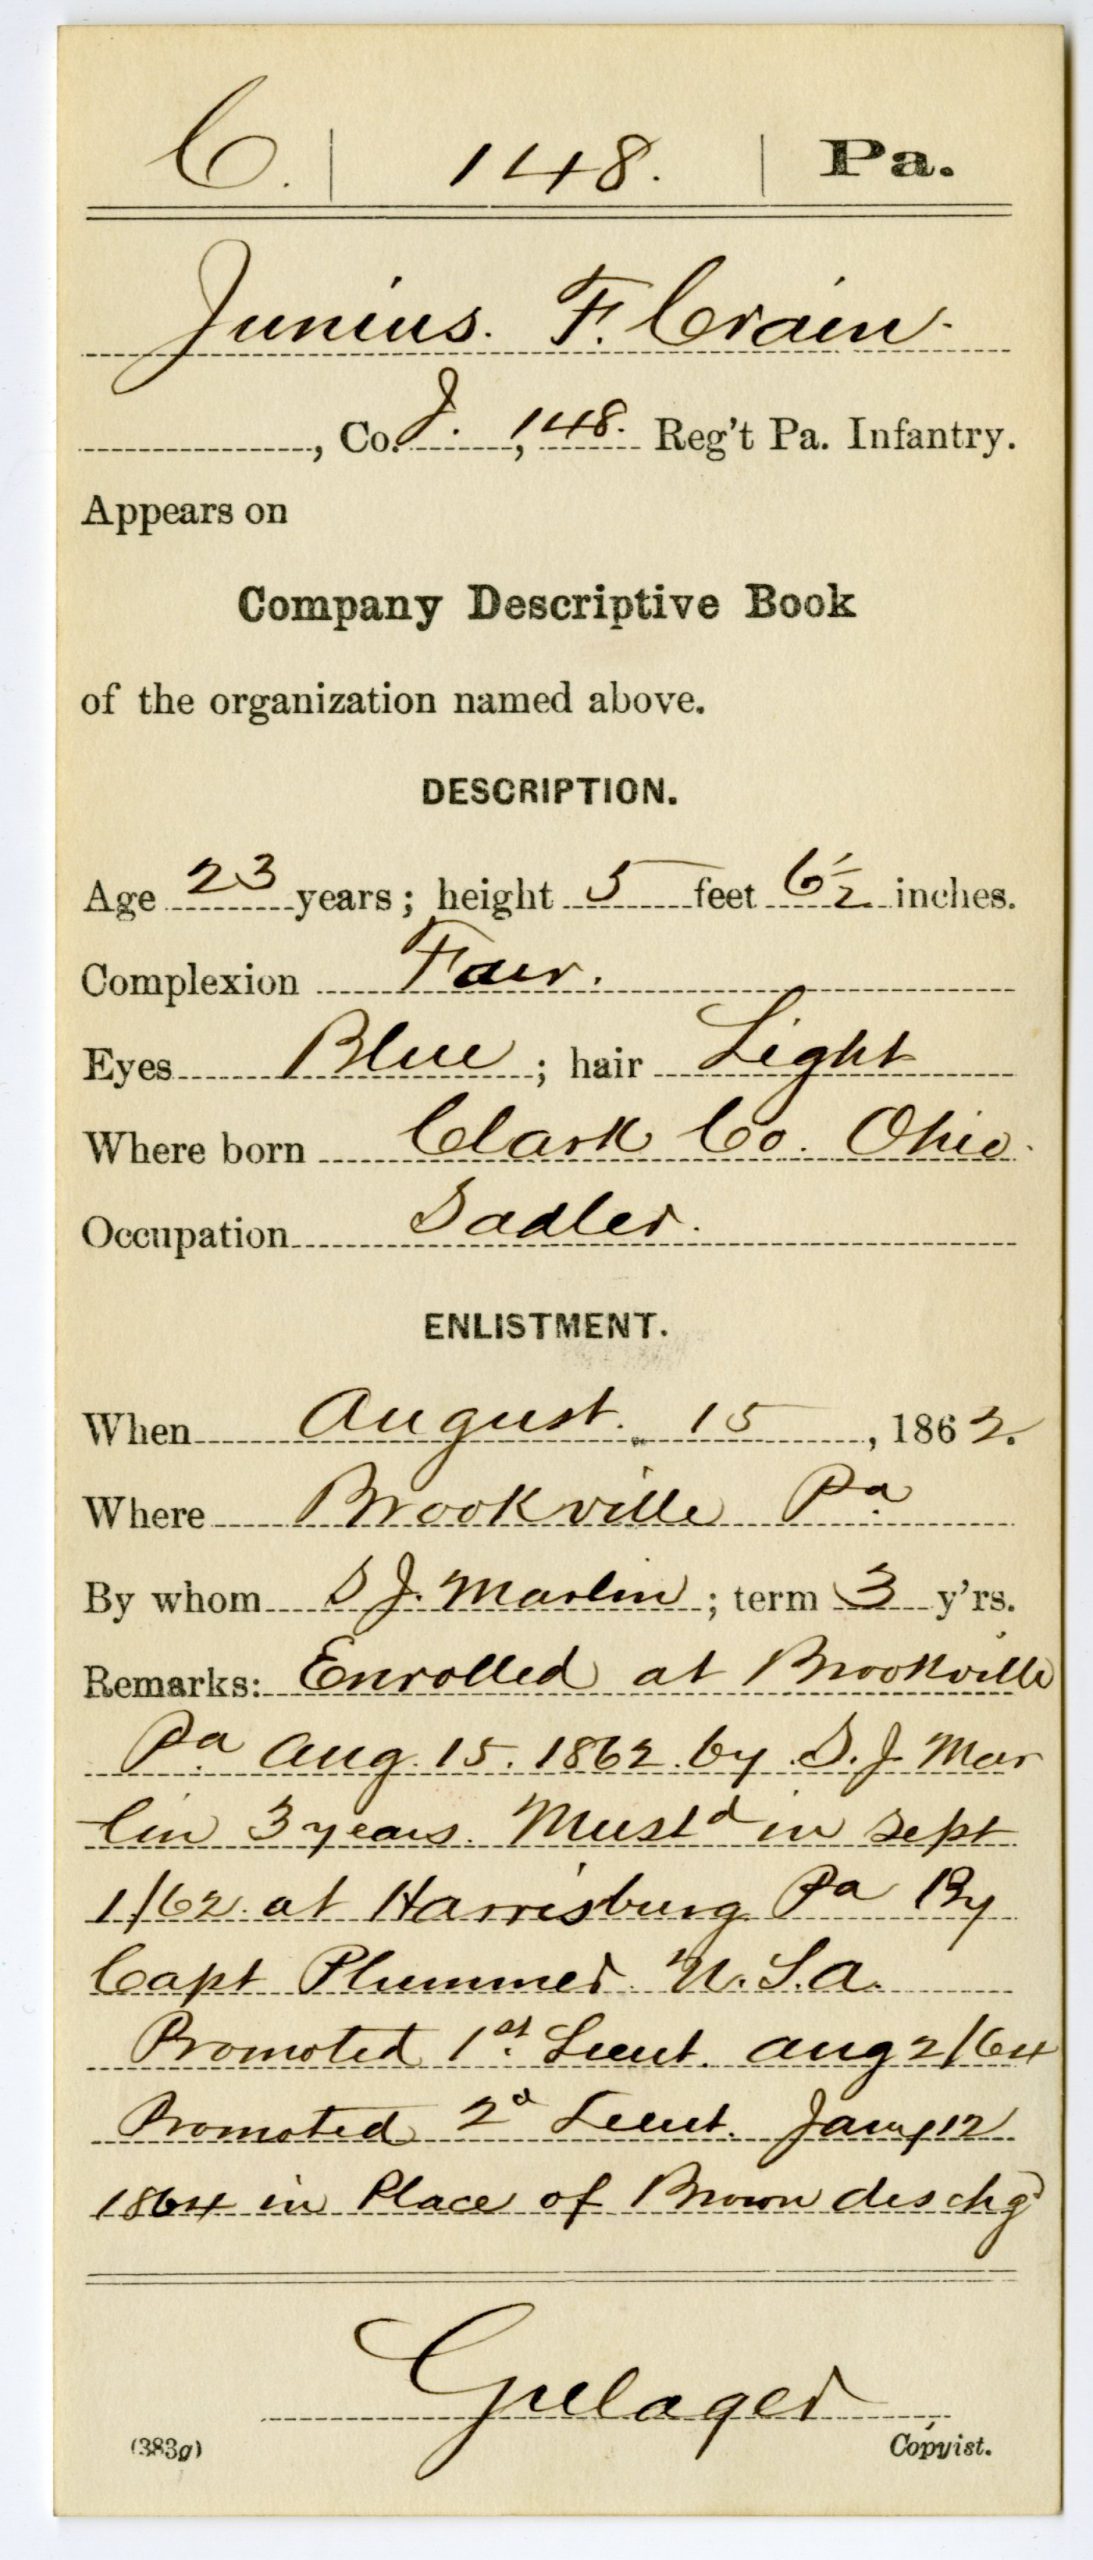 C. | 148. | Pa.
Junius. F. Crain.
, Co. I., 148. Reg't Pa. Infantry.
Appears on
Company Descriptive Book
of the organization named above.
DESCRIPTION.
Age 23 years; height 5 feet 6½ inches.
Complexion Fair.
Eyes Blue; hair Light
Where born Clark Co. Ohio.
Occupation Sadler.
ENLISTMENT.
When August. 15, 1862.
Where Brookville Pa.
By whom S J. Marlin; term 3 y'rs.
Remarks: Enrolled at Brookville
Pa. Aug. 15. 1862. by S. J. Mar
lin 3 years. Must^d in Sept
1/62. at Harrisburg Pa By
Capt Plummer. U. S. A.
Promoted 1st. Lieut. Aug 2/64
Promoted 2d Lieut. Jany 12
1864 in Place of Brown dischgd
(383g) Copyist.